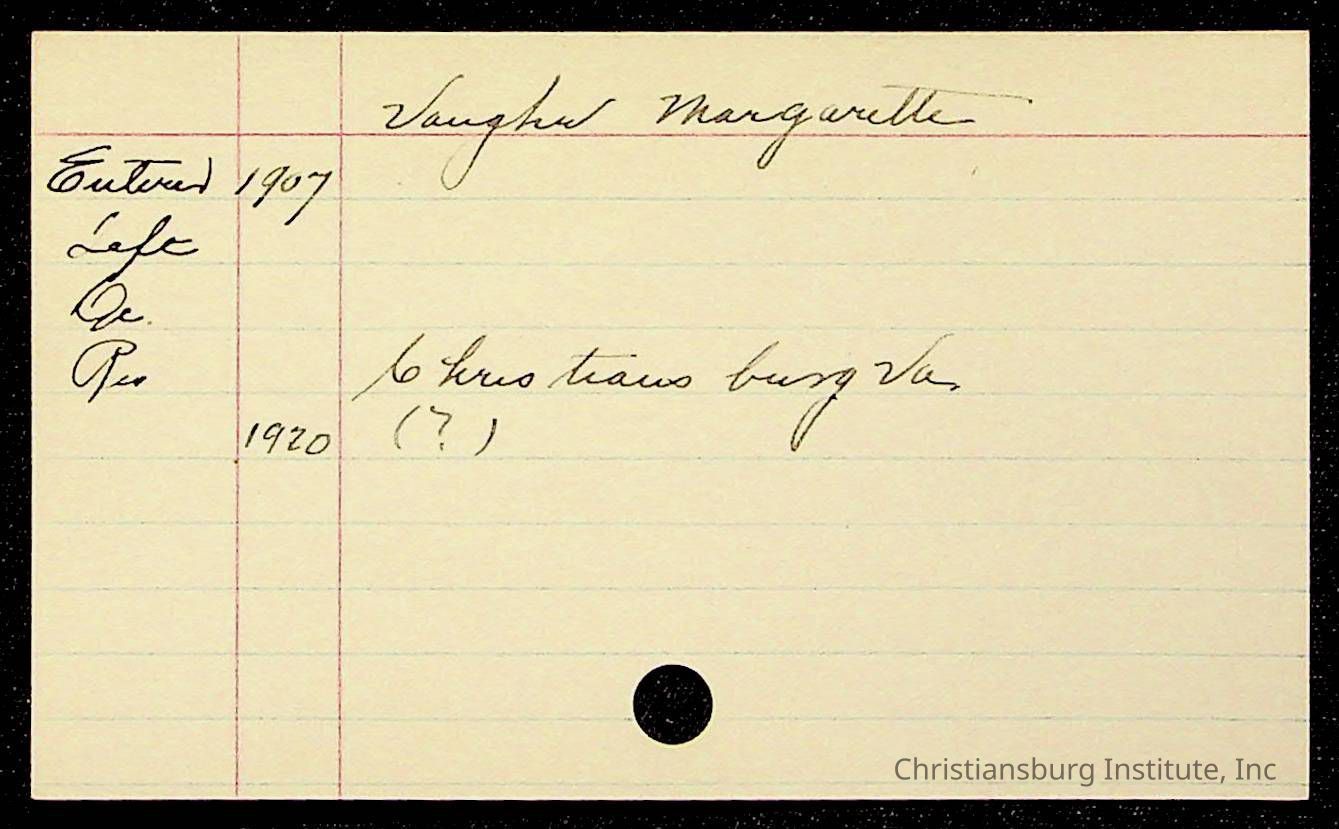 Vaughn Margarette
Entered 1907
Left
Gr.
Res Christiansburg Va.
1920 (?)
Christiansburg Institute, Inc